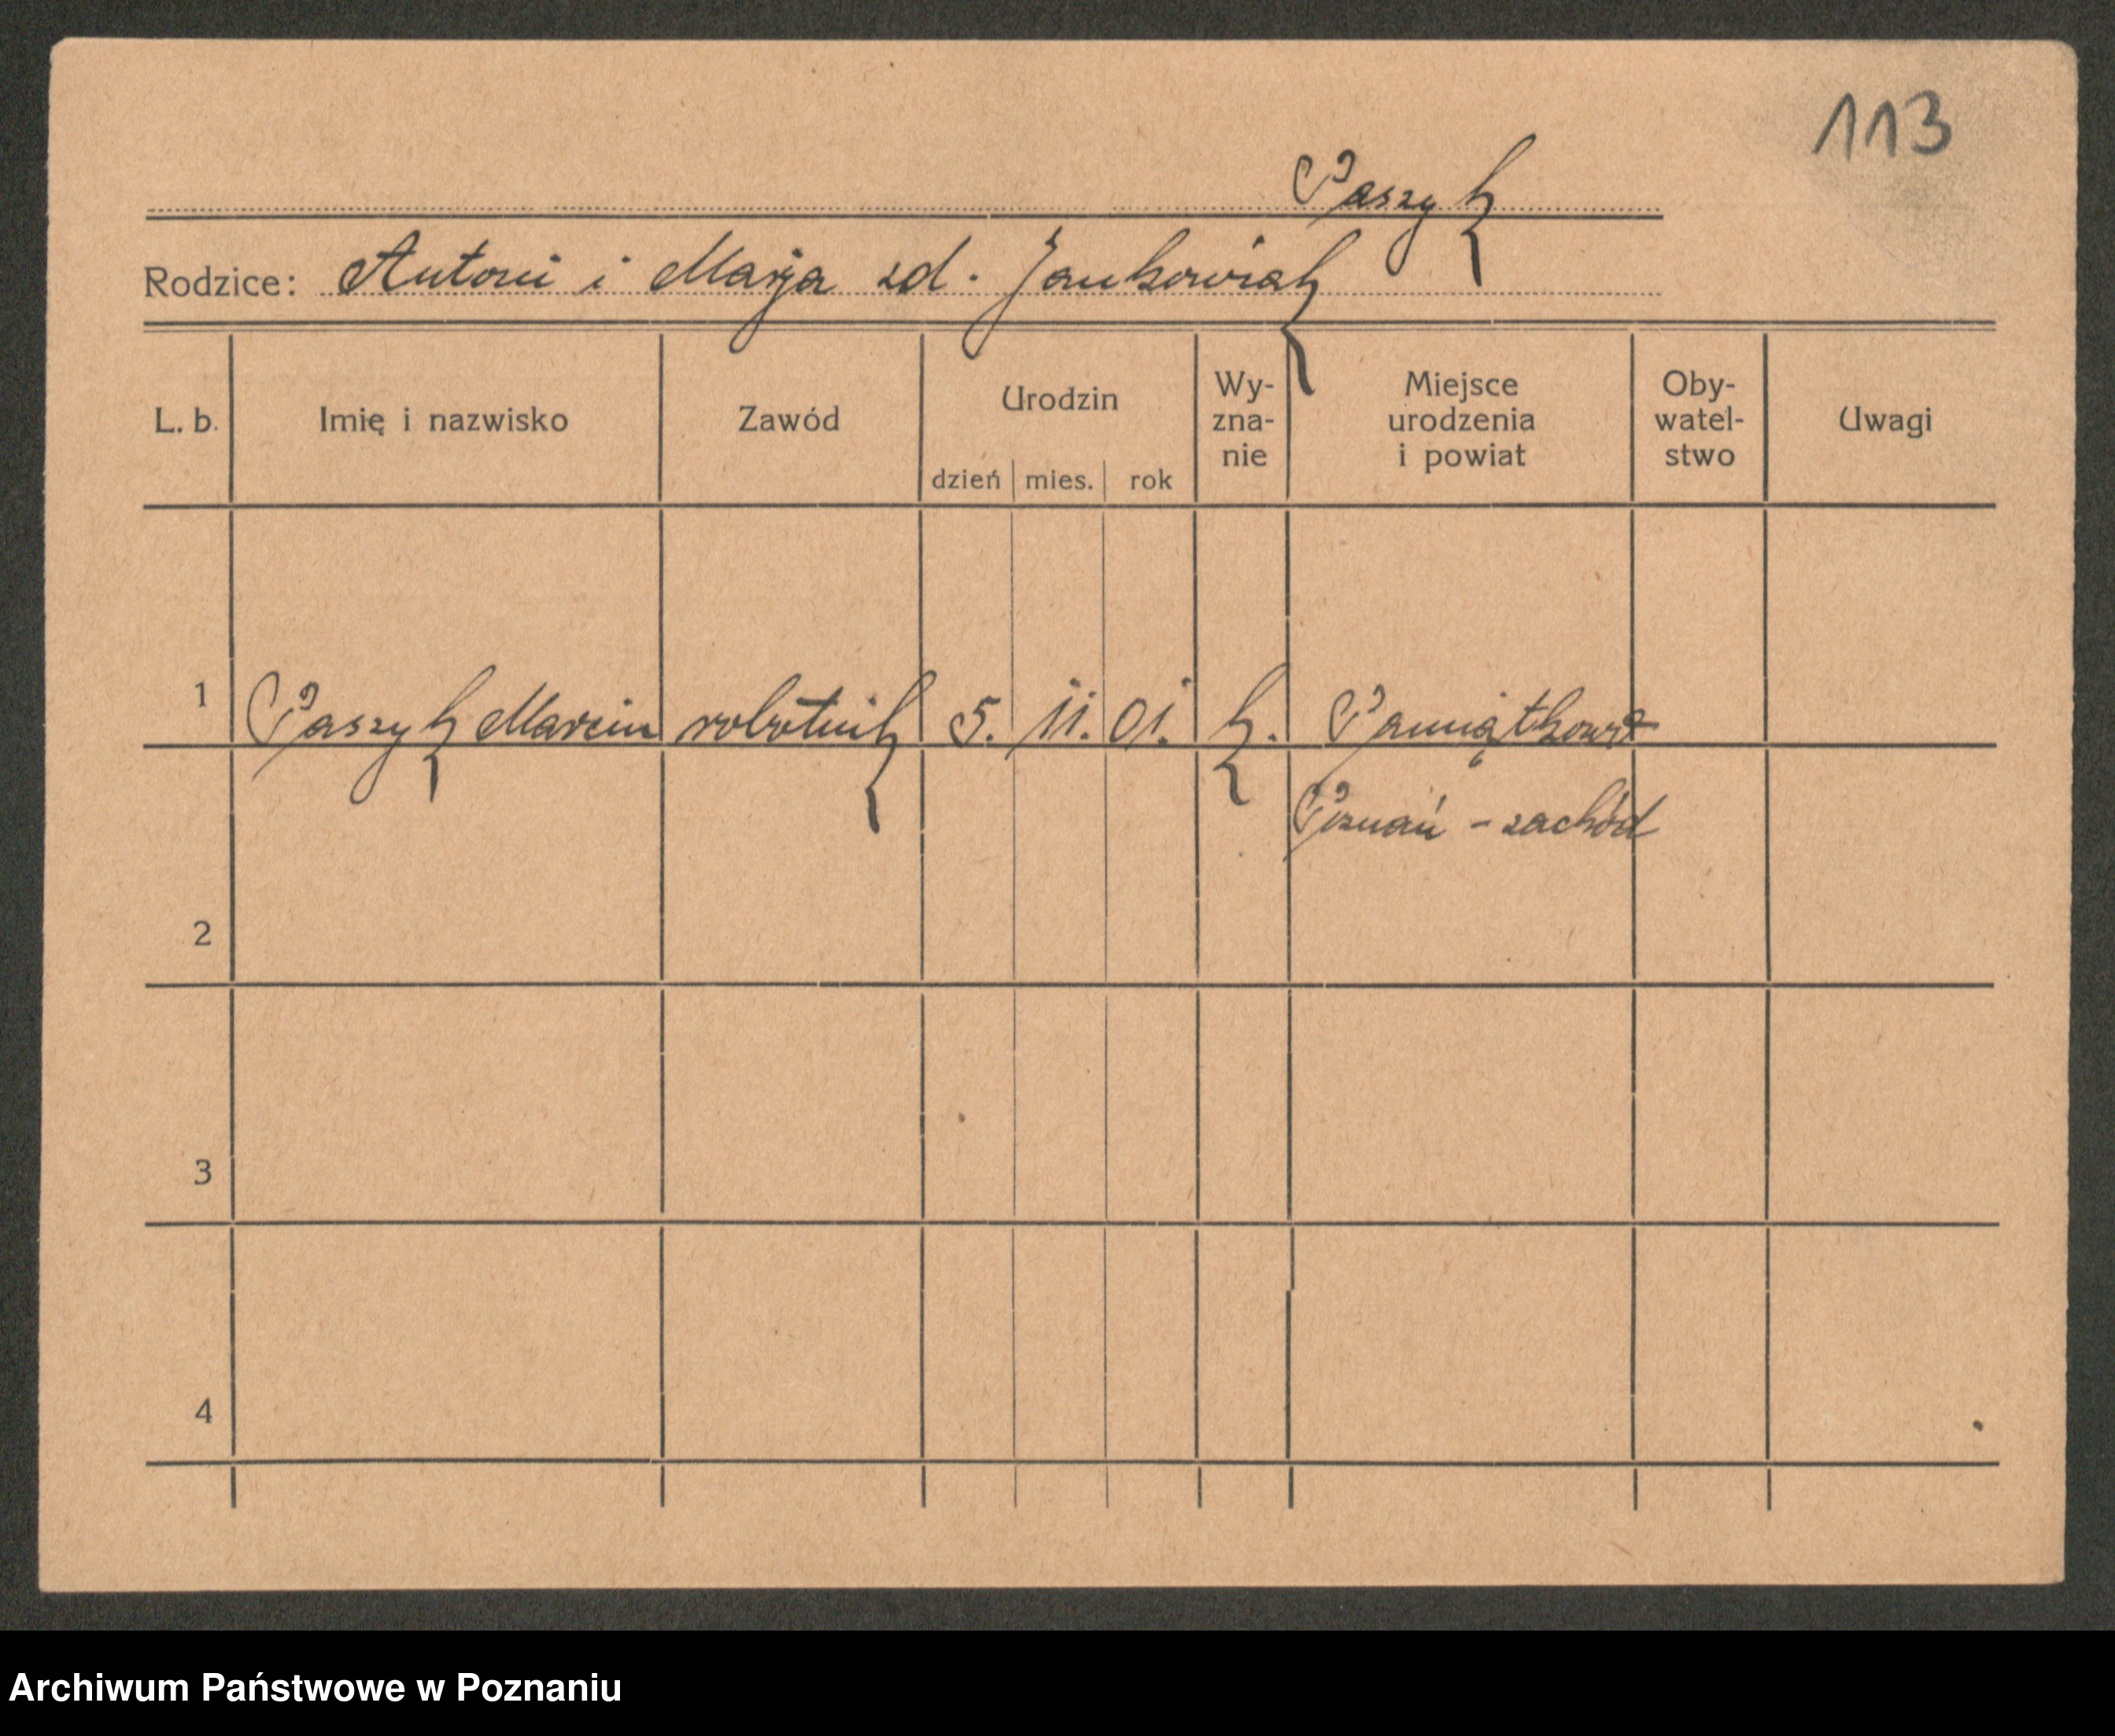 113
Paszyk
Rodzice: Antoni i Marja zd. Jankowiak
L. b. Imię i nazwisko Zawód Urodzin dzień mies. rok Wy-zna-nie Miejsce urodzenia i powiat Oby-watel-stwo Uwagi
1 Paszyk Marcin robotnik 5. 11. 01. k. Pamiątkowo
Poznań - zachód
2
3
4
Archiwum Państwowe w Poznaniu